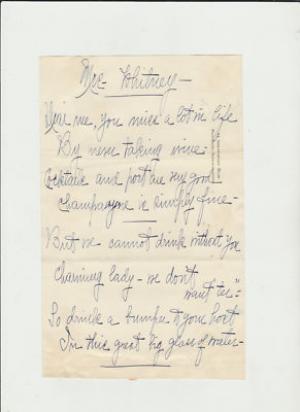 Mrs. Whitney -
Dear me, you miss a lot in life
By never taking wine -
Cocktails and port are very good
Champagne is simply fine -
But we - cannot drink without you
Charming lady - we don't
want ter "
So drink a bumper to your host
In this great big glass of water -